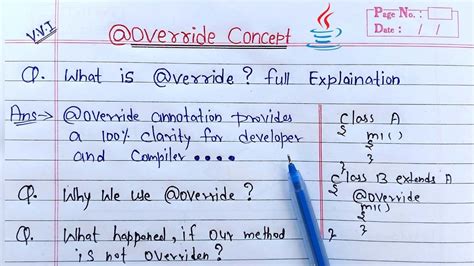 V.V.I
@Override Concept
Page No.:
Date: / /
Q. What is @verride? full Explaination
Ans→ @override annotation provides
a 100% clarity for developer
and Compiler ....
class A
{ m1()
{
}
}
class B extends A
{ @override
m1()
{
}
}
Q. Why We use @override?
Q. What happened, if our method
is not overriden?